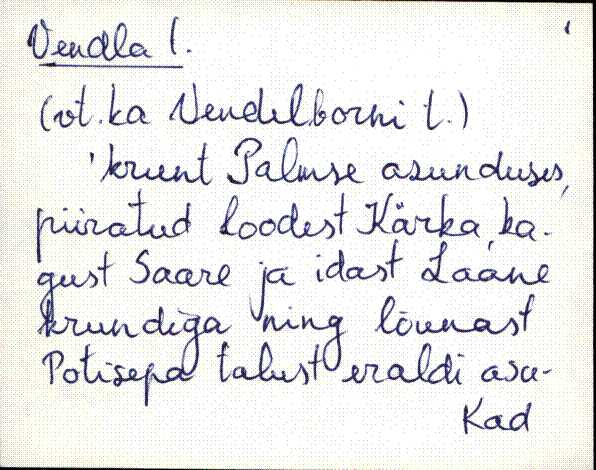 Vendla t.
(vt. ka Vendelborni t.)
'krunt Palmse asunduses,
piiratud loodest Kärka, ka-
gust Saare ja idast Lääne
krundiga ning lõunast
Potisepa talust eraldi asu-
Kad